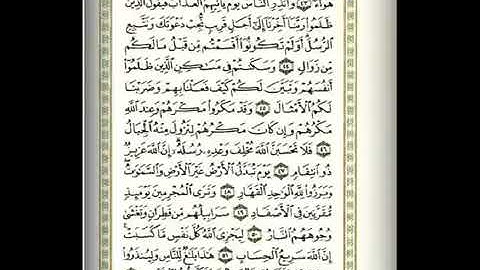 هَوَآءٌ ٤٣ وَأَنذِرِ ٱلنَّاسَ يَوْمَ يَأْتِيهِمُ ٱلْعَذَابُ فَيَقُولُ ٱلَّذِينَ
ظَلَمُوا۟ رَبَّنَآ أَخِّرْنَآ إِلَىٰٓ أَجَلٍ قَرِيبٍ نُّجِبْ دَعْوَتَكَ وَنَتَّبِعِ
ٱلرُّسُلَ أَوَلَمْ تَكُونُوٓا۟ أَقْسَمْتُم مِّن قَبْلُ مَا لَكُم
مِّن زَوَالٍ ٤٤ وَسَكَنتُمْ فِى مَسَٰكِنِ ٱلَّذِينَ ظَلَمُوٓا۟
أَنفُسَهُمْ وَتَبَيَّنَ لَكُمْ كَيْفَ فَعَلْنَا بِهِمْ وَضَرَبْنَا
لَكُمُ ٱلْأَمْثَالَ ٤٥ وَقَدْ مَكَرُوا۟ مَكْرَهُمْ وَعِندَ ٱللَّهِ
مَكْرُهُمْ وَإِن كَانَ مَكْرُهُمْ لِتَزُولَ مِنْهُ ٱلْجِبَالُ
٤٦ فَلَا تَحْسَبَنَّ ٱللَّهَ مُخْلِفَ وَعْدِهِۦ رُسُلَهُۥٓ إِنَّ ٱللَّهَ عَزِيزٌ
ذُو ٱنتِقَامٍ ٤٧ يَوْمَ تُبَدَّلُ ٱلْأَرْضُ غَيْرَ ٱلْأَرْضِ وَٱلسَّمَٰوَٰتُ
وَبَرَزُوا۟ لِلَّهِ ٱلْوَٰحِدِ ٱلْقَهَّارِ ٤٨ وَتَرَى ٱلْمُجْرِمِينَ يَوْمَئِذٍ
مُّقَرَّنِينَ فِى ٱلْأَصْفَادِ ٤٩ سَرَابِيلُهُم مِّن قَطِرَانٍ وَتَغْشَىٰ
وُجُوهَهُمُ ٱلنَّارُ ٥٠ لِيَجْزِىَ ٱللَّهُ كُلَّ نَفْسٍ مَّا كَسَبَتْ
إِنَّ ٱللَّهَ سَرِيعُ ٱلْحِسَابِ ٥١ هَٰذَا بَلَٰغٌ لِّلنَّاسِ وَلِيُنذَرُوا۟